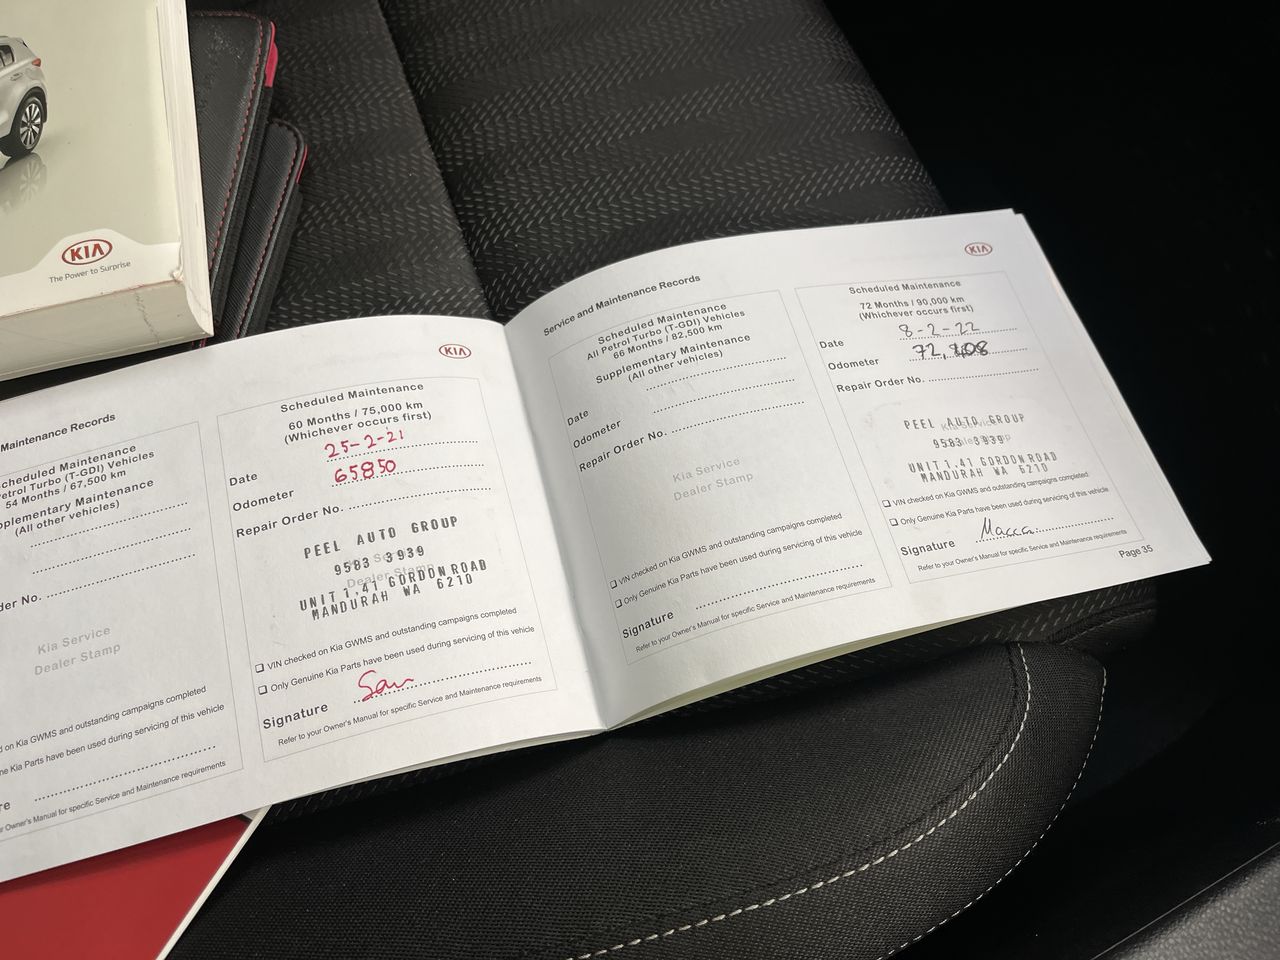 KIA
The Power to Surprise
Maintenance Records
Scheduled Maintenance
Petrol Turbo (T-GDI) Vehicles
54 Months / 67,500 km
Supplementary Maintenance
(All other vehicles)
der No.
Kia Service
Dealer Stamp
d on Kia GWMS and outstanding campaigns completed
ne Kia Parts have been used during servicing of this vehicle
re
r Owner's Manual for specific Service and Maintenance requirements
KIA
Scheduled Maintenance
60 Months / 75,000 km
(Whichever occurs first)
Date 25-2-21
Odometer 65850
Repair Order No.
PEEL AUTO GROUP
9583 3939
Dealer Stamp
UNIT 1,41 GORDON ROAD
MANDURAH WA 6210
VIN checked on Kia GWMS and outstanding campaigns completed
Only Genuine Kia Parts have been used during servicing of this vehicle
Signature Sam
Refer to your Owner's Manual for specific Service and Maintenance requirements
Service and Maintenance Records
Scheduled Maintenance
All Petrol Turbo (T-GDI) Vehicles
66 Months / 82,500 km
Supplementary Maintenance
(All other vehicles)
Date
Odometer
Repair Order No.
Kia Service
Dealer Stamp
VIN checked on Kia GWMS and outstanding campaigns completed
Only Genuine Kia Parts have been used during servicing of this vehicle
Signature
Refer to your Owner's Manual for specific Service and Maintenance requirements
KIA
Scheduled Maintenance
72 Months / 90,000 km
(Whichever occurs first)
Date 8-2-22
Odometer
Repair Order No.
PEEL AUTO GROUP
9583 3939
UNIT 1,41 GORDON ROAD
MANDURAH WA 6210
VIN checked on Kia GWMS and outstanding campaigns completed
Only Genuine Kia Parts have been used during servicing of this vehicle
Signature Macca
Refer to your Owner's Manual for specific Service and Maintenance requirements
Page 35